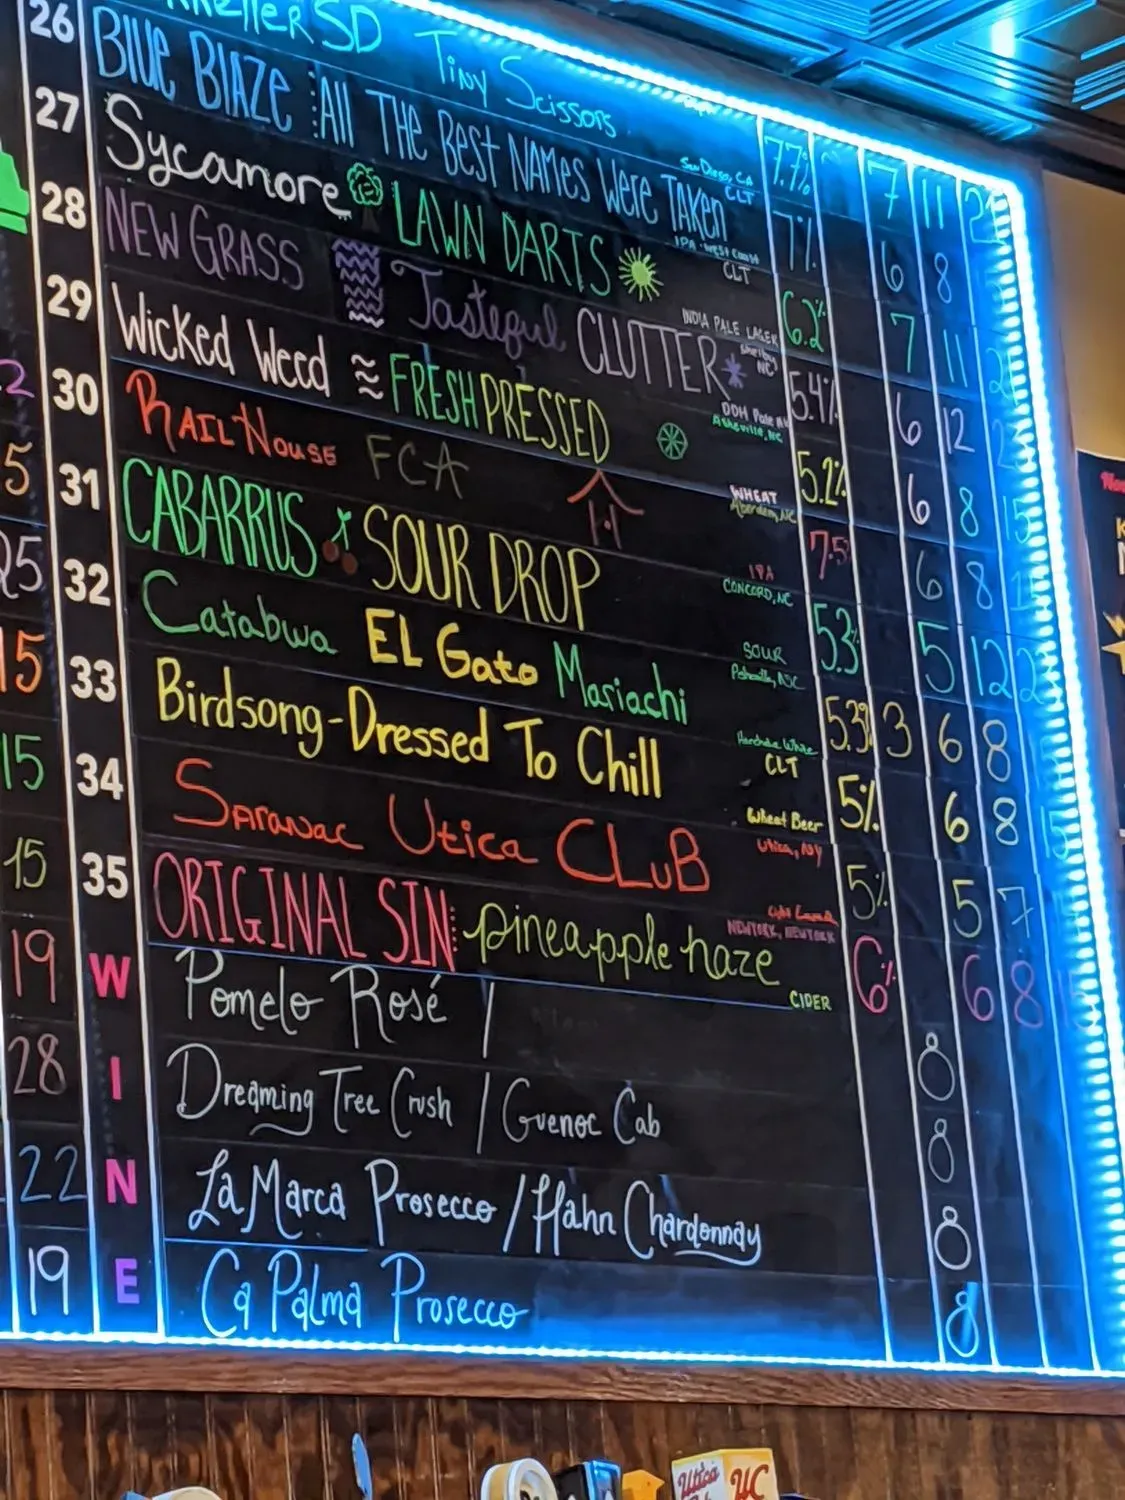 KellerSD Tiny Scissors
San Diego, CA 7.7% 7 11
26 Blue Blaze All The Best Names Were Taken CLT 7% 6 8
IPA West Coast
27 Sycamore LAWN DARTS CLT 6.2% 7 11
INDIA PALE LAGER
28 NEW GRASS Tasteful CLUTTER Shelby NC 5.4% 6 12
DDH Pale
29 Wicked Weed FRESH PRESSED Asheville, NC 5.2% 6 8 15
WHEAT
30 RAIL HOUSE FCA H Aberdeen, NC 7.5 6 8
IPA
31 CABARRUS SOUR DROP CONCORD, NC 5.3% 5 12
SOUR
32 Catabwa EL Gato Mariachi 5.3% 3 6 8
33 Birdsong - Dressed To Chill CLT 5% 6 8
Wheat Beer
34 Saranac Utica CLuB Utica, NY 5% 5 7
35 ORIGINAL SIN pineapple haze NEWYORK, NEWYORK 6% 6 8
CIDER
W Pomelo Rosé / 8
I Dreaming Tree Crush / Guenoc Cab 8
N La Marca Prosecco / Hahn Chardonnay 8
E Ca Palma Prosecco 8
2
5
25
15
15
15
19
28
22
19
Utica
UC